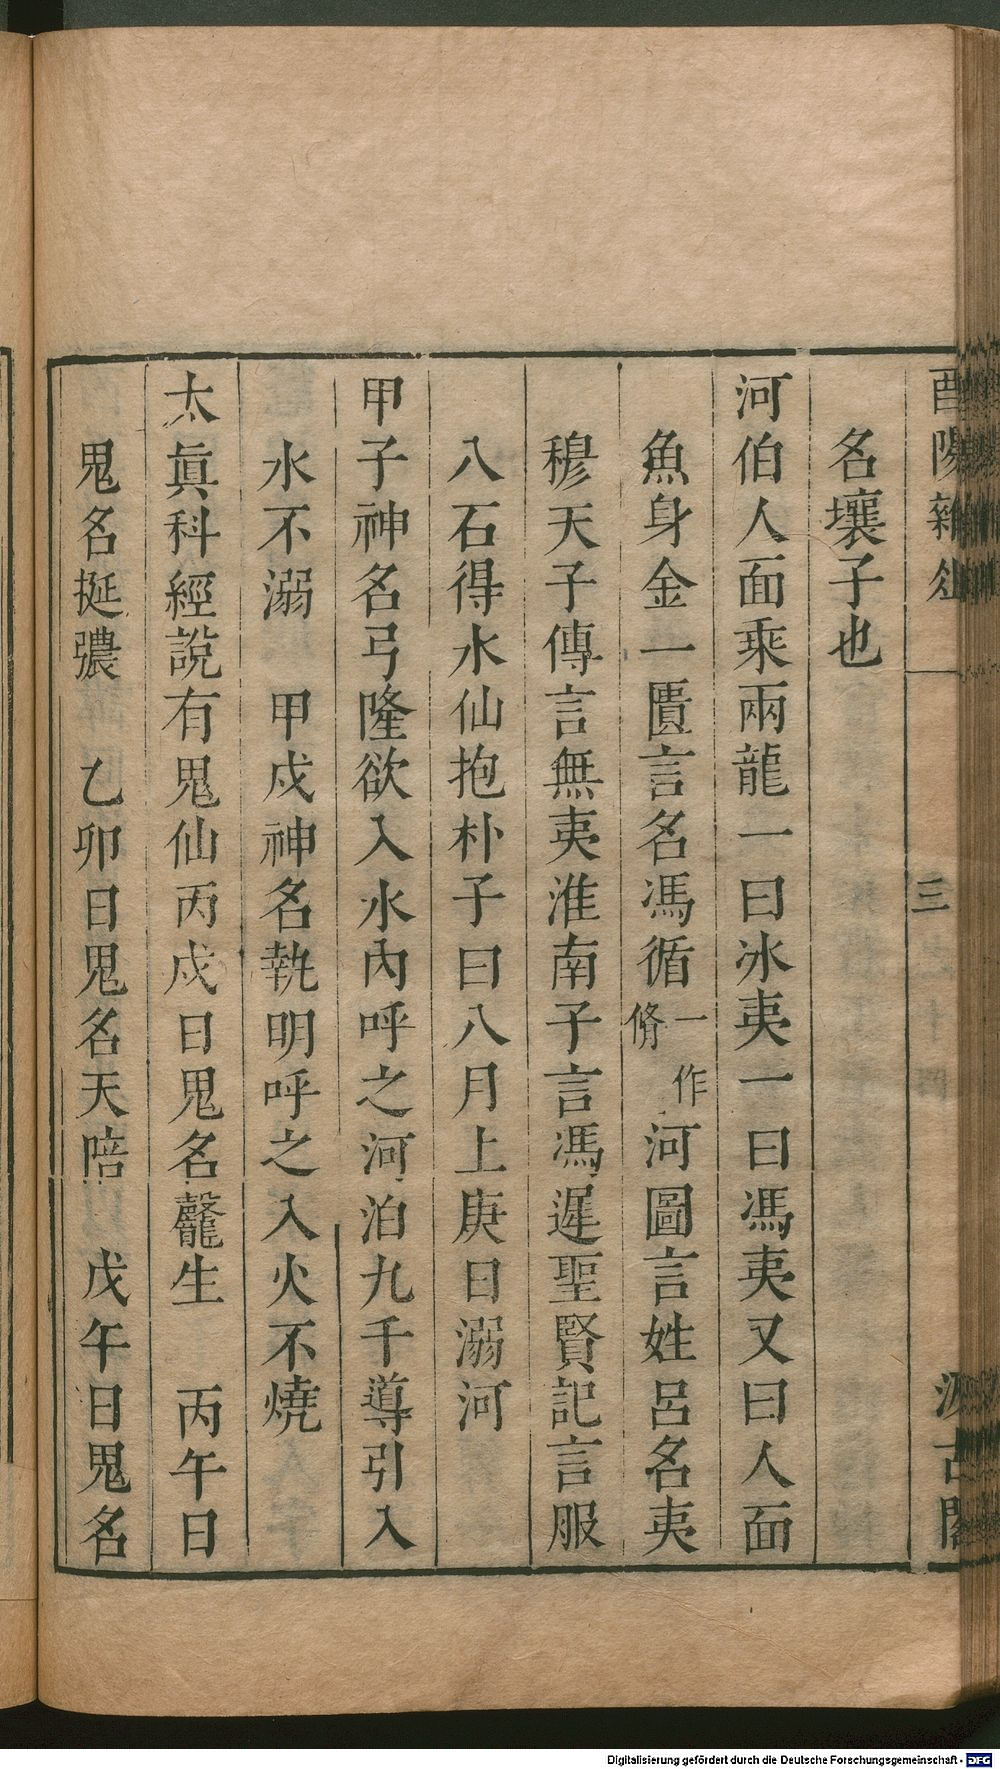 酉陽雜俎 三 汲古閣
名壤子也
河伯人面乘兩龍一曰冰夷一曰馮夷又曰人面
魚身金一匱言名馮循一作脩河圖言姓呂名夷
穆天子傳言無夷淮南子言馮遲聖賢記言服
八石得水仙抱朴子曰八月上庚日溺河
甲子神名弓隆欲入水內呼之河泊九千導引入
水不溺 甲戍神名執明呼之入火不燒
太眞科經說有鬼仙丙戍日鬼名䶬生 丙午日
鬼名挻䃩 乙卯日鬼名天陪 戊午日鬼名
Digitalisierung gefördert durch die Deutsche Forschungsgemeinschaft - DFG